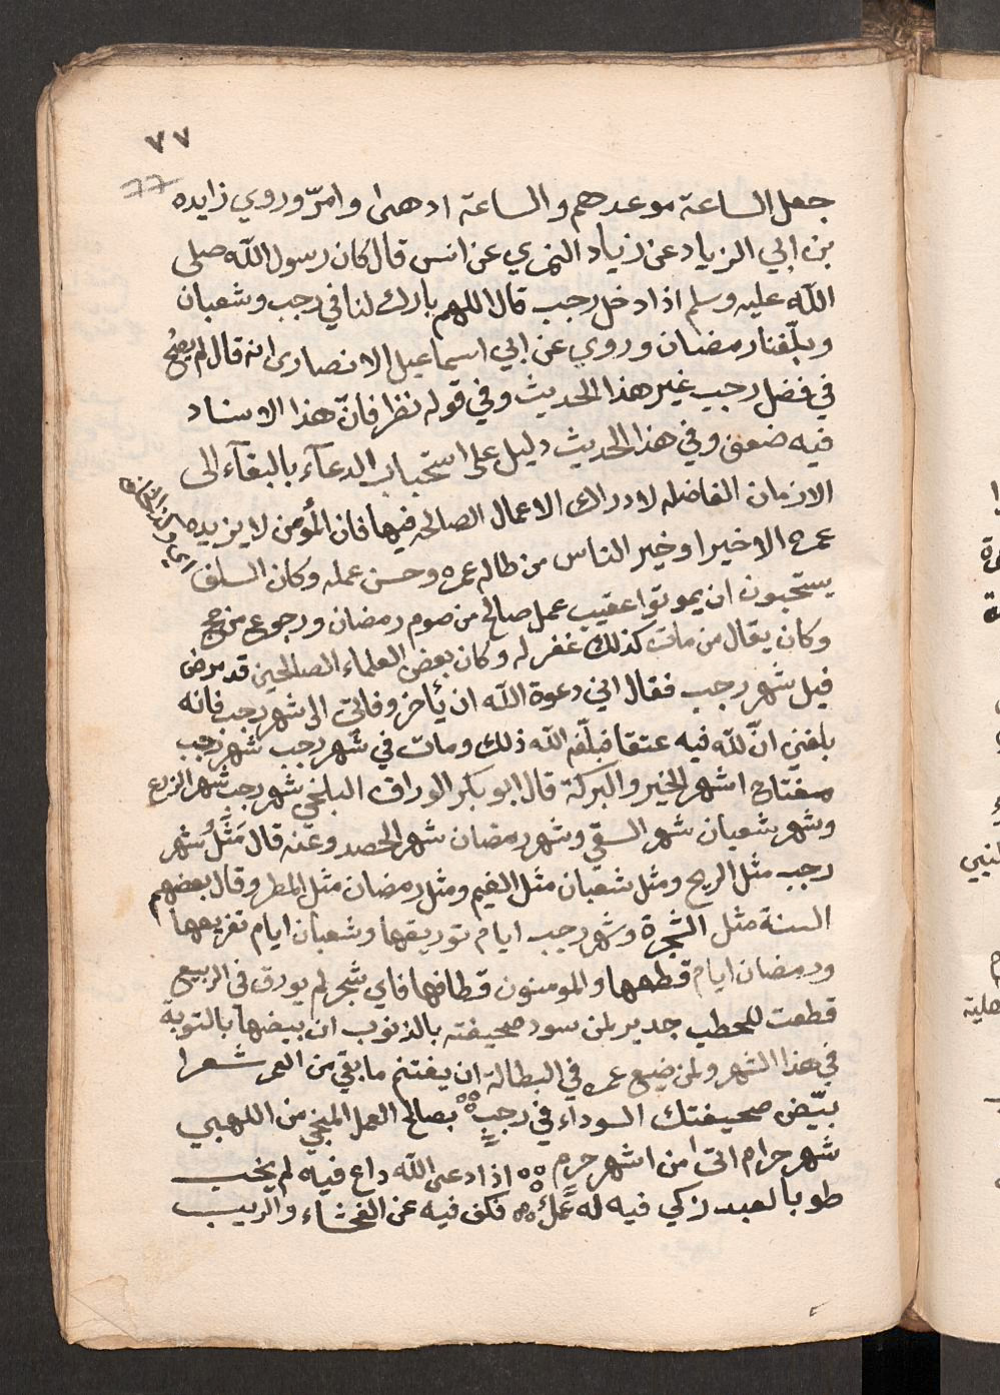 ٧٧
77
جعل الساعة موعدهم والساعة ادهى وامرّ وروي زايده
بن ابي الزياد عن زياد النمري عن انس قال كان رسول الله صلى
الله عليه وسلم اذا دخل رجب قال اللهم بارك لنا في رجب وشعبان
وبلّغنا رمضان وروي عن ابي اسماعيل الانصارى انه قال لم يصُح
في فضل رجب غير هذا الحديث وفي قوله نظر فانّ هذا الاسناد
فيه ضعف وفي هذا الحديث دليل على استحباب الدعآء بالبقآء الى
الازمان الفاضله لادراك الاعمال الصالحه فيها فان المؤمن لا يزيده
عمره الا خيرا وخير الناس من طاله عمره وحسن عمله وكان السلف
يستحبون ان يموتوا عقيب عمل صالح من صوم رمضان ورجوع من حج
وكان يقال من مات كذلك غفر له وكان بعض العلماء الصالحين قد مرض
قبل شهر رجب فقال اني دعوة الله ان يأخر وفاتى الى شهر رجب فانه
بلغني انّ لله فيه عتقا فبلّغه الله ذلك ومات في شهر رجب شهر رجب
مفتاح اشهر الخير والبركة قال ابو بكر الوراق البلخي شهر رجب شهر الزرع
وشهر شعبان شهر السقي وشهر رمضان شهر الحصد وعنه قال مَثَلُ شهر
رجب مثل الريح ومثل شعبان مثل الغيم ومثل رمضان مثل المطر وقال بعضهم
السنة مثل الشجرة وشهر رجب ايام توريقها وشعبان ايام تفريعها
ورمضان ايام قطعها والمومنون قطافها فاي شجر لم يورق في الربيع
قطعت للحطب جدير لمن سود صحيفته بالذنوب ان يبيضها بالتوبة
في هذا الشهر ولمن ضيع عمره في البطالة ان يغتنم ما بقي من العمر شعرا
بيّض صحيفتك السوداء في رجب بصالح العمل المنجي من اللهبي
شهر حرام اتى من اشهر حرم اذا دعى الله داع فيه لم يخب
طوبا لعبد زكي فيه له عمل فكف فيه عن الفحشاء والريب